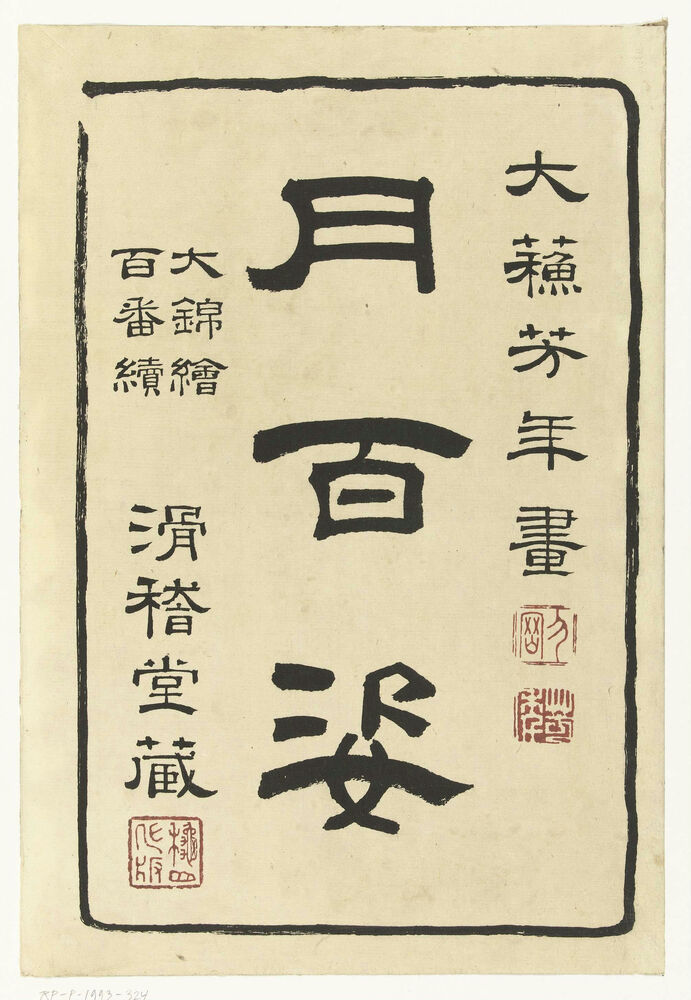 大蘓芳年畫
月百姿
大錦繪
百番續
滑稽堂蔵
RP-P-1993-324